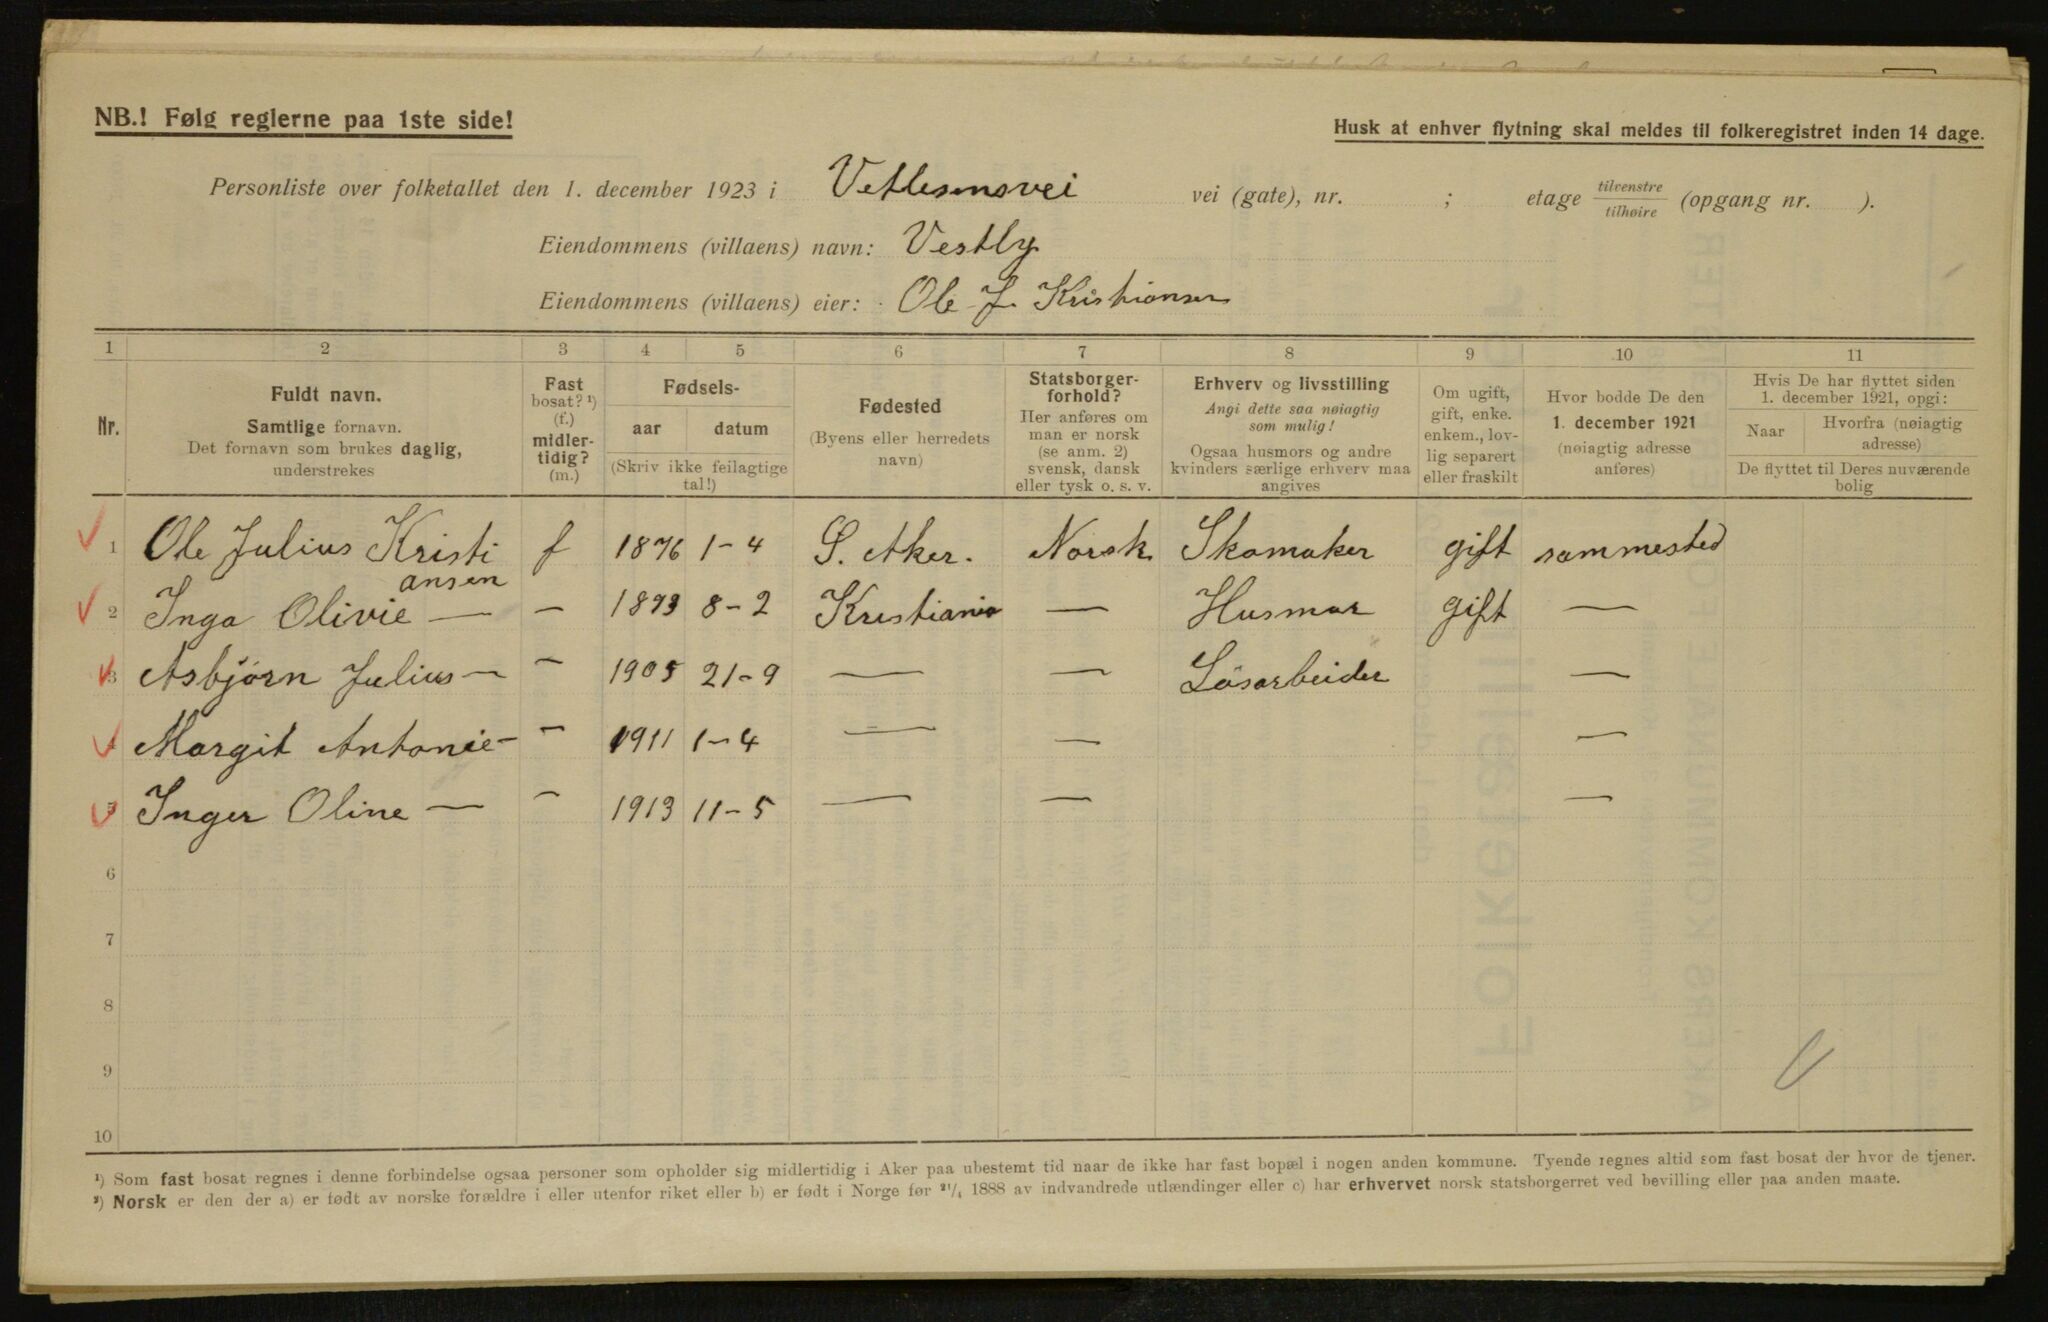 NB.! Følg reglerne paa 1ste side!
Husk at enhver flytning skal meldes til folkeregistret inden 14 dage.
Personliste over folketallet den 1. december 1923 i Vetlesensvei vei (gate), nr. ; etage tilvenstre/tilhøire (opgang nr. ).
Eiendommens (villaens) navn: Vestly
Eiendommens (villaens) eier: Ole J. Kristiansen
1 2 3 4 5 6 7 8 9 10 11
Nr.
Fuldt navn.
Samtlige fornavn.
Det fornavn som brukes daglig,
understrekes
Fast
bosat? ¹)
(f.)
midler-
tidig?
(m.)
Fødsels-
aar datum
(Skriv ikke feilagtige
tal!)
Fødested
(Byens eller herredets
navn)
Statsborger-
forhold?
Her anføres om
man er norsk
(se anm. 2)
svensk, dansk
eller tysk o. s. v.
Erhverv og livsstilling
Angi dette saa nøiagtig
som mulig!
Ogsaa husmors og andre
kvinders særlige erhverv maa
angives
Om ugift,
gift, enke.
enkem., lov-
lig separert
eller fraskilt
Hvor bodde De den
1. december 1921
(nøiagtig adresse
anføres)
Hvis De har flyttet siden
1. december 1921, opgi:
Naar Hvorfra (nøiagtig
adresse)
De flyttet til Deres nuværende
bolig
1 Ole Julius Kristi f 1876 1-4 S. Aker. Norsk Skomaker gift sammested
ansen
2 Inga Olivie — — 1873 8-2 Kristiania — Husmor gift —
3 Asbjørn Julius — — 1905 21-9 — — Løsarbeider —
4 Margit Antonie — — 1911 1-4 — — —
5 Inger Oline — — 1913 11-5 — — —
6
7
8
9
10
¹) Som fast bosat regnes i denne forbindelse ogsaa personer som opholder sig midlertidig i Aker paa ubestemt tid naar de ikke har fast bopæl i nogen anden kommune. Tyende regnes altid som fast bosat der hvor de tjener.
²) Norsk er den der a) er født av norske forældre i eller utenfor riket eller b) er født i Norge før ²¹/₄ 1888 av indvandrede utlændinger eller c) har erhvervet norsk statsborgerret ved bevilling eller paa anden maate.